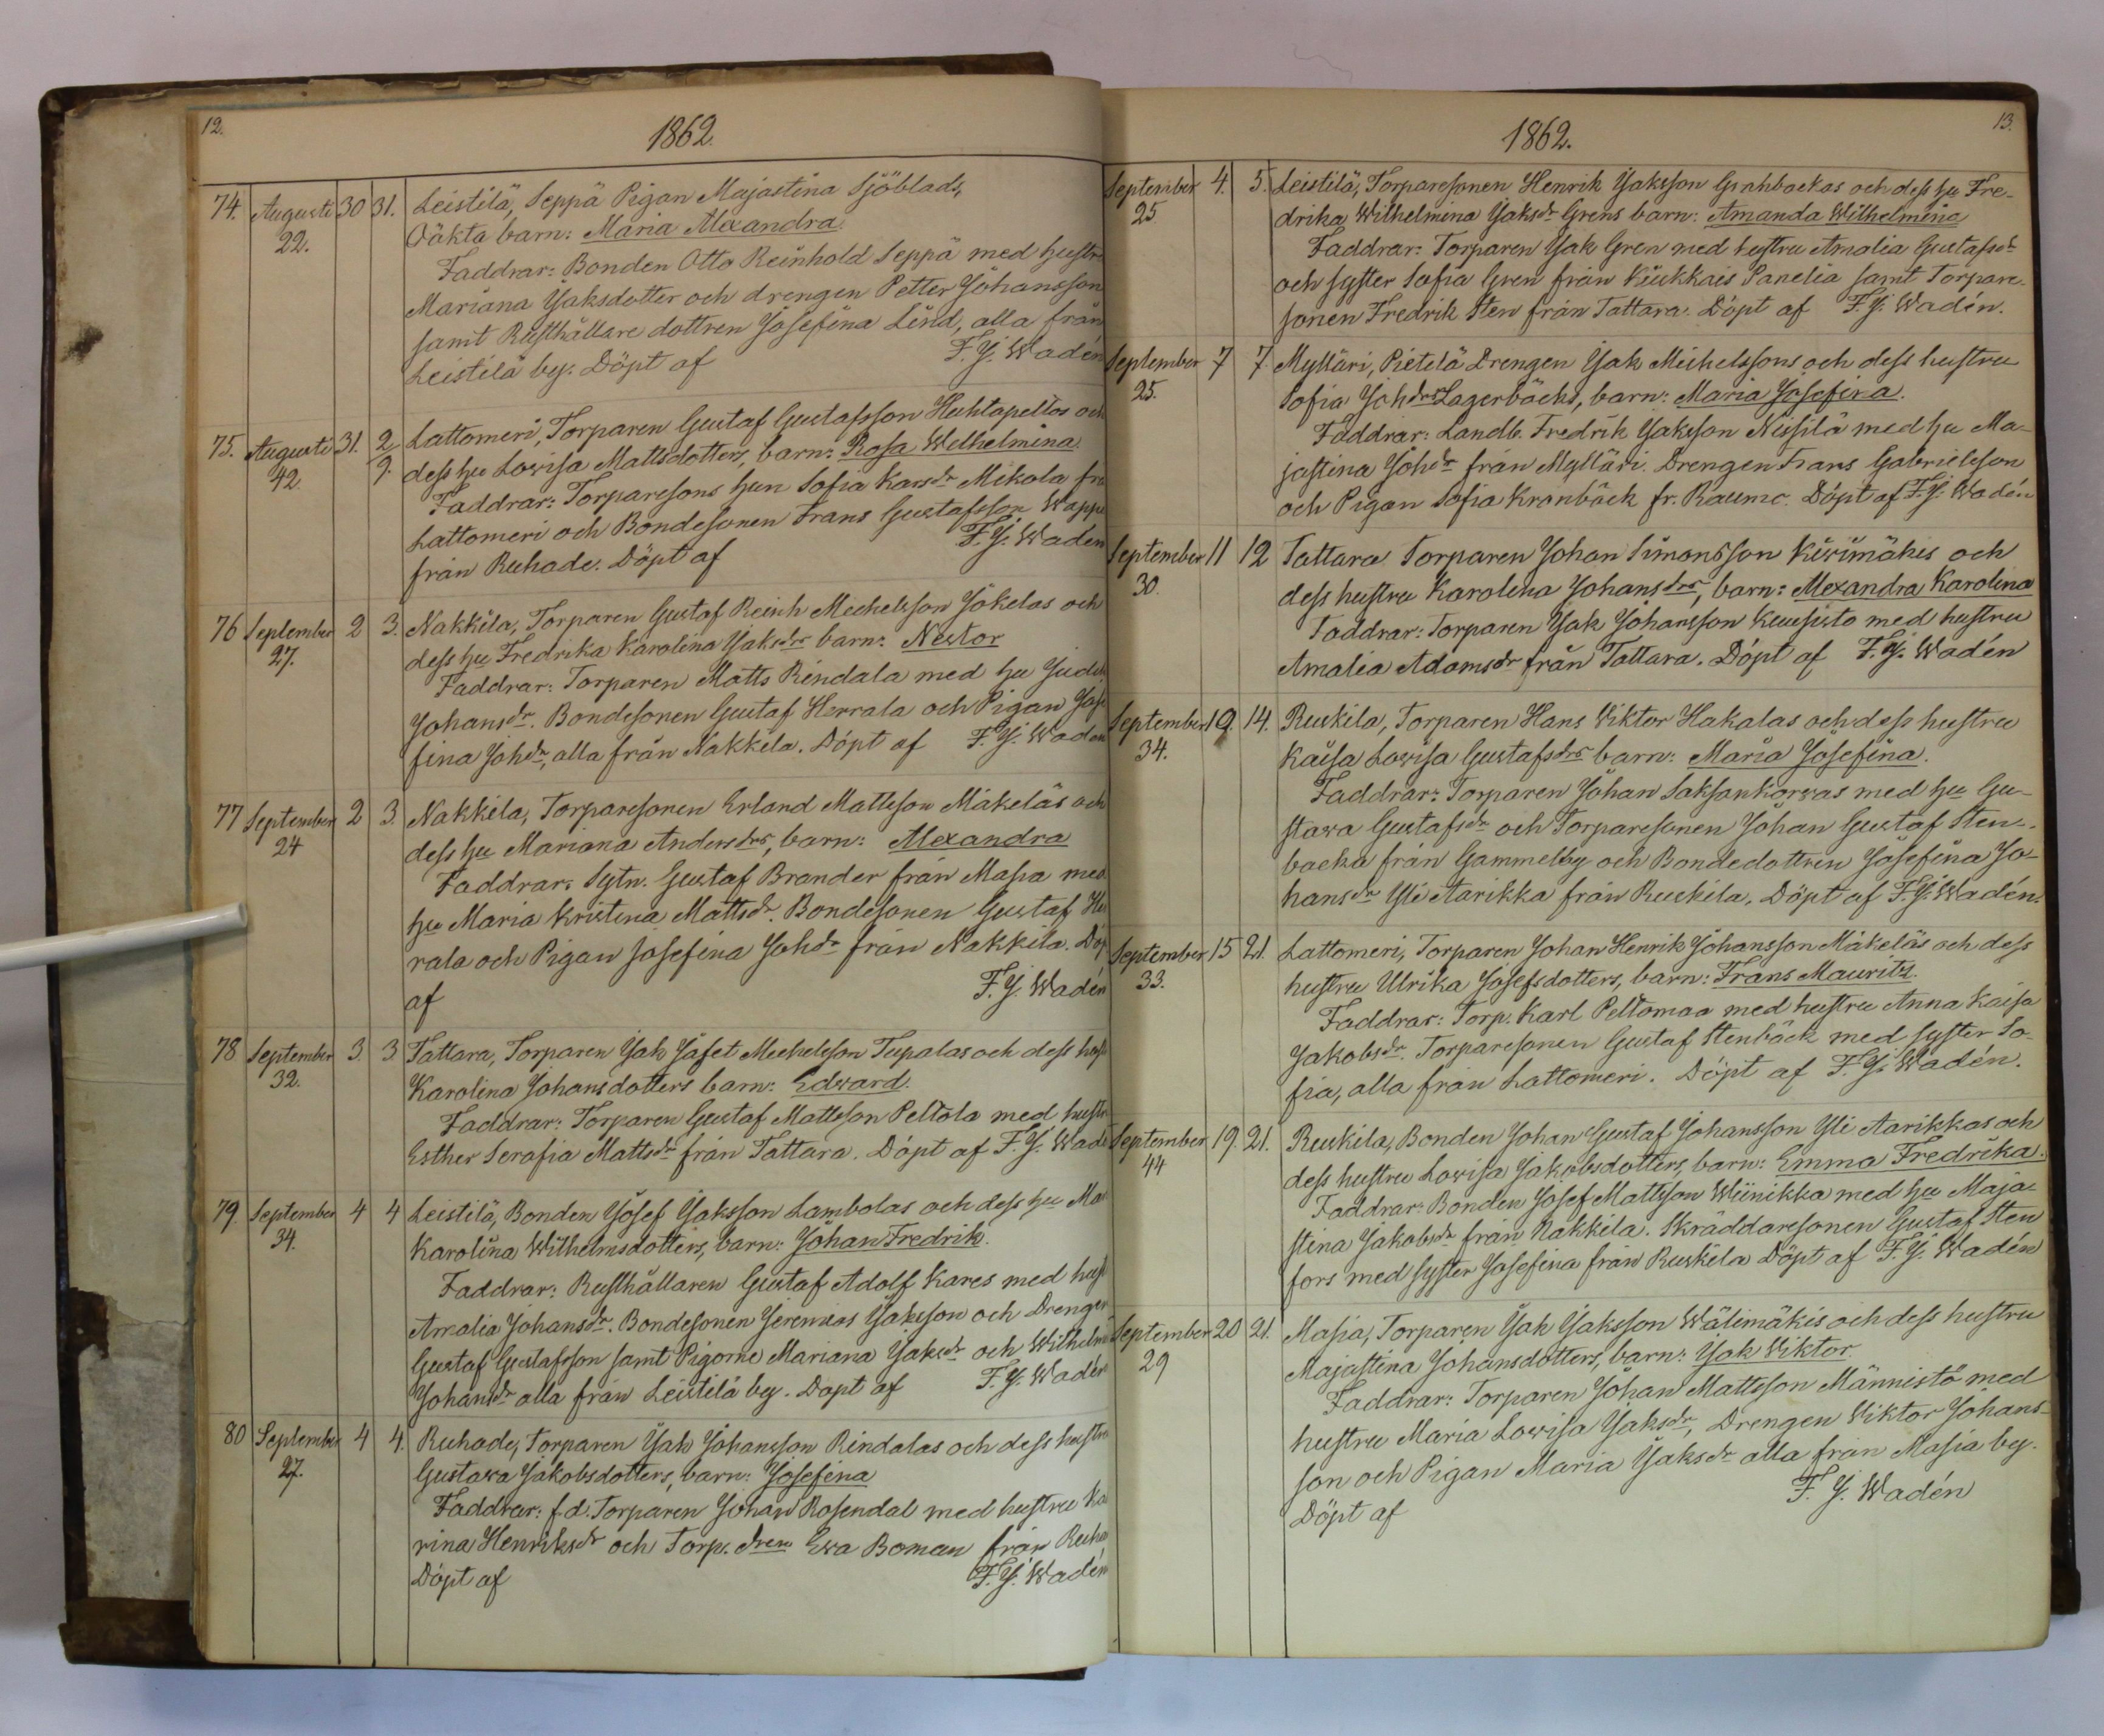 12.
1862.
74. Augusti 30 31. Leistilä, Seppä Pigan Majastina Sjöblads,
22. Oäkta barn: Maria Alexandra.
Faddrar: Bonden Otto Reinhold Seppä med hustr
Mariana Jaksdotter och drengen Petter Johansson
samt Rusthållare dottren Josefina Lind, alla från
Leistilä by. Döpt af F. J. Wadén
75. Augusti 31. 2 Lattomeri, Torparen Gustaf Gustafsson Huhtapeltos och
42. 9. dess hu Lowisa Mattsdotters, barn: Rosa Wilhelmina.
Faddrar: Torparesons hun Sofia Karsdr Mikola fr
Lattomeri och Bondesonen Frans Gustafsson Wappu
från Ruhade. Döpt af F. J. Wadén
76 September 2 3. Nakkila, Torparen Gustaf Reinh Michelsson Jokelas och
27. dess hu Fredrika Karolina Jaksdrs barn: Nestor
Faddrar: Torparen Matts Rindala med hu Judit
Johansdr. Bondesonen Gustaf Herrala och Pigan Jose
fina Johdr, alla från Nakkila. Döpt af F. J. Wadén
77 September 2 3. Nakkila, Torparesonen Erland Mattsson Mäkeläs och
24 dess hu Mariana Andersdrs, barn: Alexandra
Faddrar: Sytn. Gustaf Brander från Masia med
hu Maria Kristina Mattsdr. Bondesonen Gustaf Her
rala och Pigan Josefina Johdr från Nakkila. Döp
af F. J. Wadén
78 September 3. 3 Tattara, Torparen Jak Jafet Michelsson Tupalas och dess hust
32. Karolina Johansdotters barn: Edward.
Faddrar: Torparen Gustaf Mattsson Peltola med hustr
Esther Serafia Mattsdr från Tattara. Döpt af F. J. Wadé
79 September 4 4 Leistilä, Bonden Josef Jaksson Lambolas och dess hu Ma
34. Karolina Wilhelmsdotters, barn: Johan Fredrik.
Faddrar: Rusthållaren Gustaf Adolf Kares med hust
Amalia Johansdr. Bondesonen Jeremias Jaksson och Drengen
Gustaf Gustafsson samt Pigorne Mariana Jaksdr och Wilhelm
Johansdr alla från Leistilä by. Döpt af F. J. Wadén
80 September 4 4. Ruhade, Torparen Jak Johansson Rindalas och dess hustru
27. Gustawa Jakobsdotters, barn: Josefina
Faddrar: f.d. Torparen Johan Rosendal med hustru Ka
rina Henriksdr och Torp. dren Ewa Boman från Ruha
Döpt af F. J. Wadén
13.
1862.
September 4. 5. Leistilä, Torparesonen Henrik Jaksson Grahbackas och dess hu Fre-
25. drika Wilhelmina Jaksdr Grens barn: Amanda Wilhelmina
Faddrar: Torparen Jak Gren med hustru Amalia Gustafsdr
och syster Sofia Gren från Kiukkais Panelia samt Torpare-
sonen Fredrik Sten från Tattara. Döpt af F. J. Wadén.
September 7 7. Mylläri, Pietilä Drengen Jak Michelssons och dess hustru
25. Sofia Johdrs Lagerbäcks, barn: Maria Josefina.
Faddrar: Landb. Fredrik Jaksson Nissilä med hu Ma-
jastina Johdr från Mylläri. Drengen Frans Gabrielsson
och Pigan Sofia Kranbäck fr. Raumo. Döpt af F. J. Wadén
September 11 12 Tattara Torparen Johan Simonsson Kiwimäkis och
30. dess hustru Karolina Johansdrs, barn: Alexandra Karolina
Faddrar: Torparen Jak Johansson Kuusisto med hustru
Amalia Adamsdr från Tattara. Döpt af F. J. Wadén
September 19. 14. Ruskila, Torparen Hans Wiktor Hakalas och dess hustru
34. Kaisa Lowisa Gustafsdrs barn: Maria Josefina.
Faddrar: Torparen Johan Saksankorwas med hu Gu-
stawa Gustafsdr och Torparesonen Johan Gustaf Sten-
backa från Gammelby och Bondedottren Josefina Jo-
hansdr Yli Aarikka från Ruskila. Döpt af F. J. Wadén.
September 15 21. Lattomeri, Torparen Johan Henrik Johansson Mäkeläs och dess
33. hustru Ulrika Josefsdotters, barn: Frans Mauritz.
Faddrar: Torp. Karl Peltomaa med hustru Anna Kaisa
Jakobsdr. Torparesonen Gustaf Stenbäck med syster So-
fia, alla från Lattomeri. Döpt af F. J. Wadén.
September 19. 21. Ruskila, Bonden Johan Gustaf Johansson Yli Aarikkas och
44 dess hustru Lowisa Jakobsdotters, barn: Emma Fredrika.
Faddrar: Bonden Josef Mattsson Wiinikka med hu Maja-
stina Jakobsdr från Nakkila. Skräddaresonen Gustaf Sten
fors med syster Josefina från Ruskila Döpt af F. J. Wadén
September 20 21. Masia, Torparen Jak Jaksson Wälimäkis och dess hustru
29 Majastina Johansdotters, barn: Jak Wiktor.
Faddrar: Torparen Johan Mattsson Männistö med
hustru Maria Lowisa Jaksdr, Drengen Wiktor Johans-
son och Pigan Maria Jaksdr alla från Masia by.
Döpt af F. J. Wadén